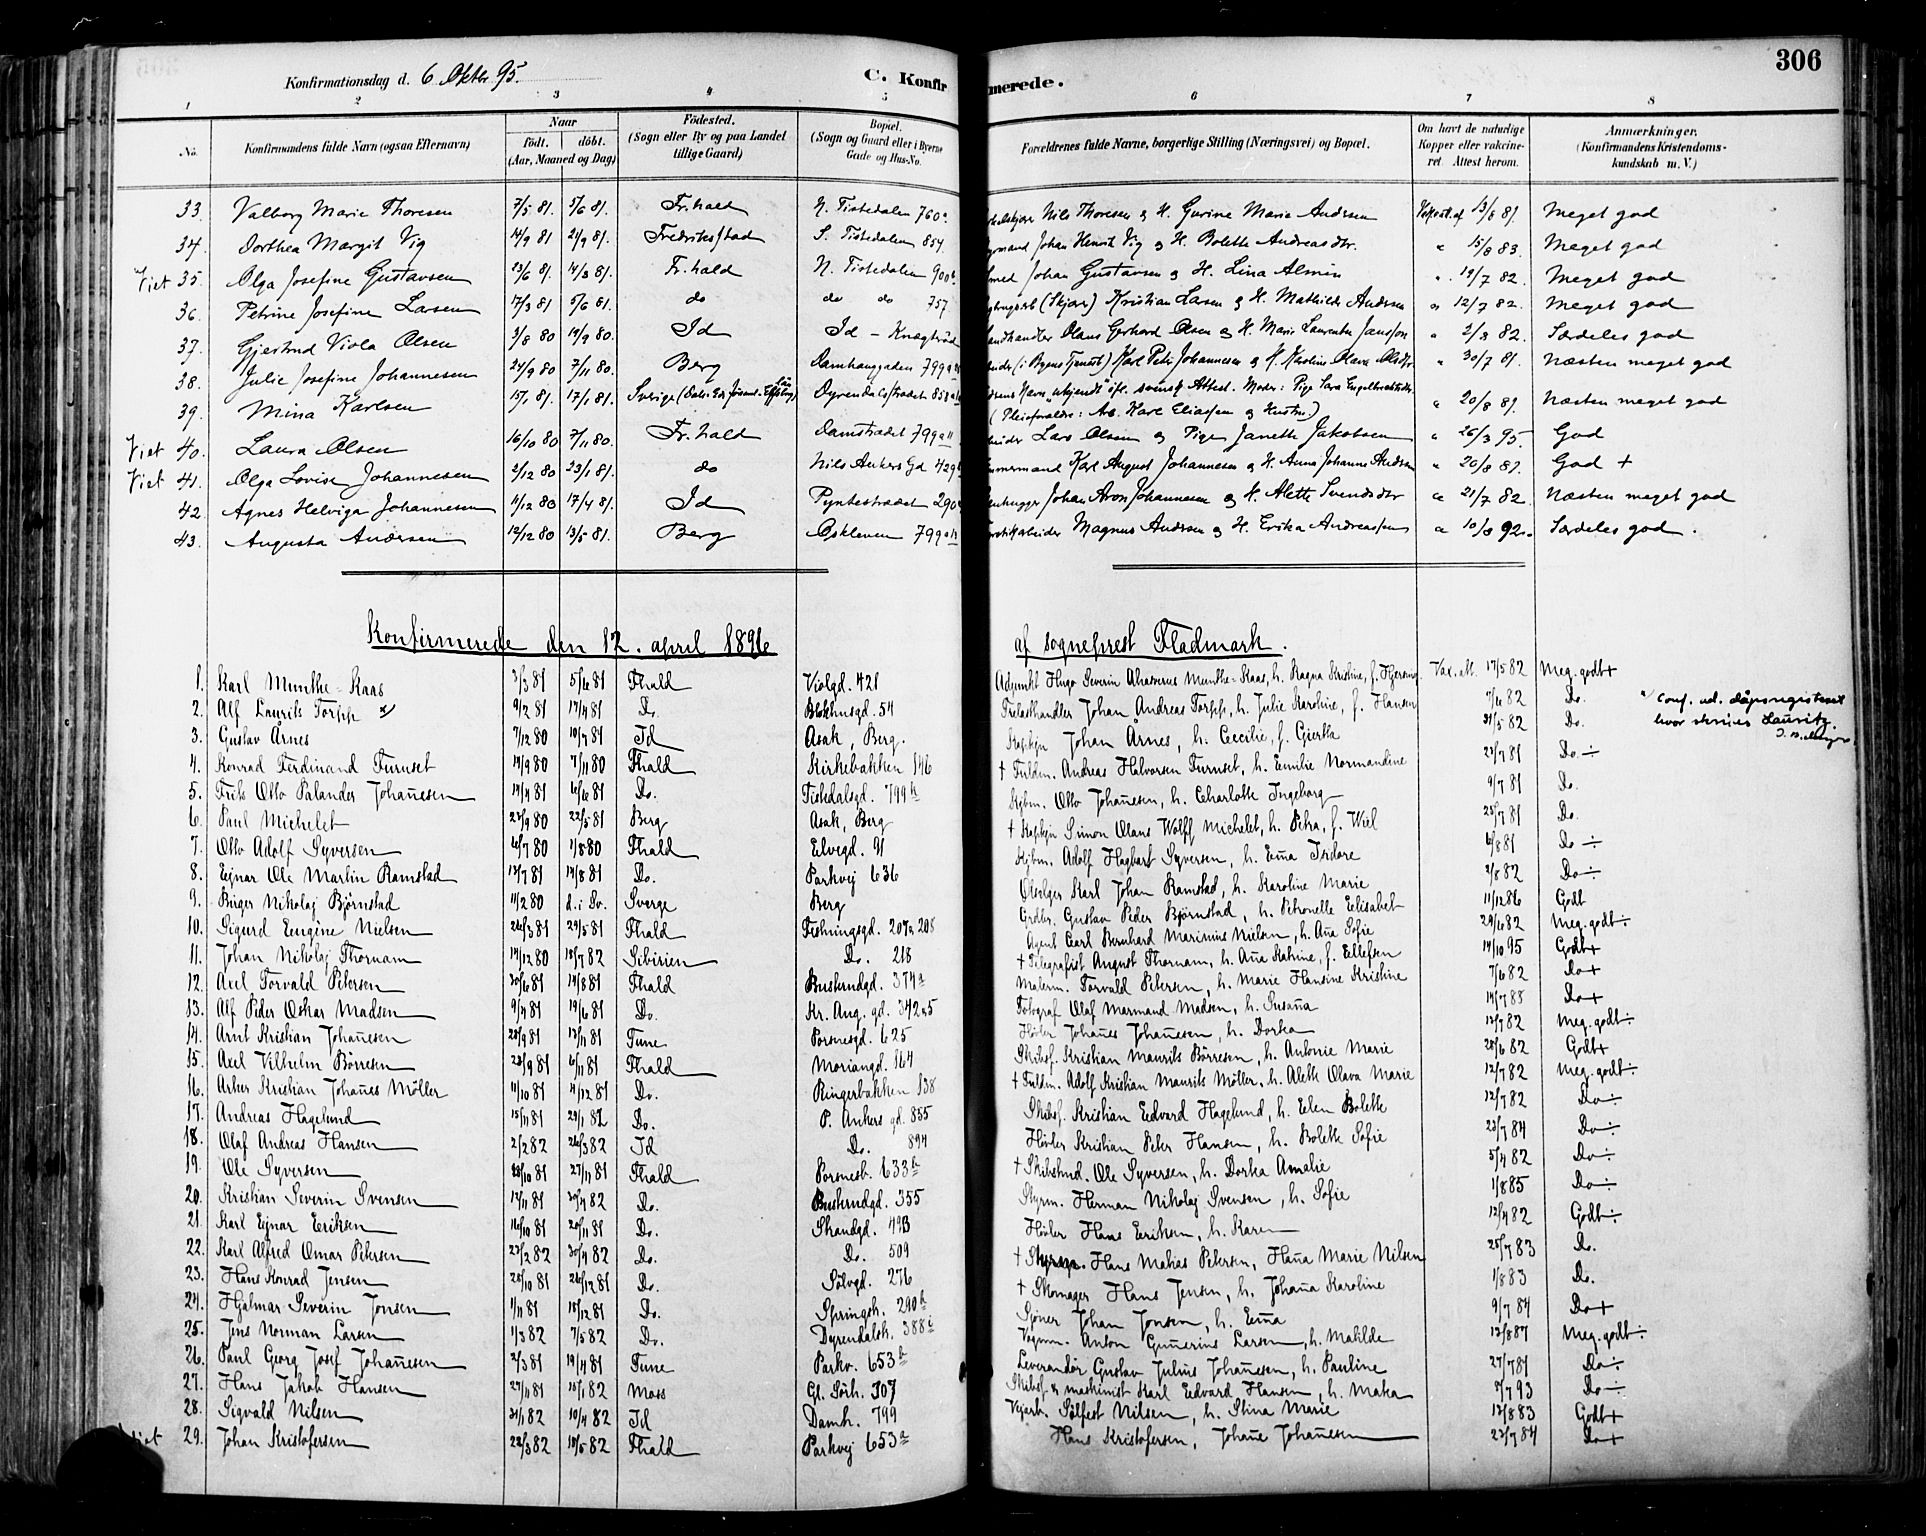 306
Konfirmationsdag d. 6 Oktbr. 95.
C. Konfirmerede.
1 2 3 4 5 6 7 8
No. Konfirmandens fulde Navn (ogsaa Efternavn) Naar født. døbt. (Aar, Maaned og Dag) Födested. (Sogn eller By og paa Landet tillige Gaard) Bopæl. (Sogn og Gaard eller i Byerne Gade og Hus-No. Forældrenes fulde Navne, borgerlige Stilling (Næringsvei) og Bopæl. Om havt de naturlige Kopper eller vakcineret. Attest herom. Anmærkninger. (Konfirmandens Kristendomskundskab m. V.)
33. Valborg Marie Thoresen 7/5 81. 5/6 81. Fr.hald N. Tistedalen 760a Nils Thoresen & H. Gurine Marie Andrsen 13/8 81. Meget god
34. Dorthea Margit Vig 14/9 81 2/9 81. Fredriksstad S. Tistedalen 854 Johan Henrik Vig & H. Bolette Andreasdtr. " 15/8 83. Meget god
Viet 35. Olga Josefine Gustavsen 23/6 81. 14/8 81. Fr.hald N. Tistedalen 900b Johan Gustavsen & H. Lina Almin " 19/7 82. Meget god
36. Petrine Josefine Larsen 17/3 81 5/6 81. do do do 757 (Skjærer) Kristian Larsen & H. Mathilde Andrsen " 12/7 82. Meget god
37. Gjertrud Viola Olsen 3/8 80 19/9 80. Id Id – Knagtrød Landhandler Olaus Gerhard Olsen & H. Marie Laurentse Jansson " 2/8 82. Særdeles god
38. Julie Josefine Johannesen 24/9 80 7/11 80. Berg Damhaugaden 799a (i Byens Tjeneste) Karl Petr. Johannesen & H. Karoline Olava Olsdtr. " 30/7 81. Næsten meget god
39. Mina Karlsen 15/1 81. 17/1 81. Sverige Dyrendalsstrædet 858 Navn "ukjendt" ifl. svensk Attest. Moder: Pige Sara Engelbrektsdtr. (Pleieforældre: Arb. Karl Eliassen og Hustru) " 20/8 81. Næsten meget god
Viet 40. Laura Olsen 16/10 80 7/11 80. Fr.hald Damstrædet 799a Lars Olsen og Pige Janette Jakobsen " 26/3 95. God
Viet 41. Olga Lovise Johannesen 2/12 80 23/1 81. do Nils Ankers Gd 429b Karl August Johannesen & H. Anna Johanne Andrsen " 20/8 81. God +
42. Agnes Helviga Johannesen 11/12 80 17/4 81. Id Pyntestrædet 290 Johan Aron Johannesen & H. Alette Svendsdtr " 21/7 82. Næsten meget god
43. Augusta Andersen 12/12 80 13/5 81. Berg Oskleven 799 Magnus Andrsen & H. Erika Andreassen " 10/8 92. Særdeles god.
Konfirmerede den 12. april 1896 af sogneprest Fladmark.
1. Karl Munthe-Kaas 3/3 81 5/6 81 Fhald Violgd. 421 Adjunkt Hugo Severin Ahasverus Munthe-Kaas, h. Ragna Kristine, f. Vax. att. 17/5 82 Meg. godt+
2. Alf Laurits Torpp x) 9/2 81 17/4 81 Do. Blokhusgd. 54 Trælasthandler Johan Andreas Torpp, h. Julie Karoline, f. Hansen 7/6 82 Do. x) Conf. ud. dåpsregisteret hvor skrives Lauritz.
3. Gustav Årnes 7/12 80 10/7 81 Id Asak, Berg. Kapkjn Johan Årnes, h. Cecilie, f. Gjerlka 31/5 82 Do.
4. Konrad Ferdinand Furuset 19/9 80 7/11 80 Fhald Kirkebakken 146 † Fuldm. Andreas Halvorsen Furuset, h. Emilie Normandine 23/7 81 Do ÷
5. Frits Otto Palander Johañesen 14/4 81 6/6 81 Do. Tistedalsgd. 799b Otto Johañesen, h. Charlotte Ingeborg 9/7 81 Do.
6. Paul Michelet 27/9 80 22/5 81 Berg Asak, Berg † Kapkjn Simon Olaus Wolff Michelet, h. Petra, f. Wiel 25/7 81 Do.
7. Otto Adolf Syversen 6/7 80 1/8 80 Fhald Elvegd. 91 Adolf Hagbart Syversen, h. Em̃a Isdore 6/8 81 Do ÷
8. Ejnar Ole Martin Ramstad 13/7 81 14/8 81 Do. Parkvej 636 Ølsælger Karl Johan Ramstad, h. Karoline Marie 2/8 82 Do ÷
9. Birger Nikolaj Bjørnstad 11/2 80 d. i Sv. Sverge Berg Grdbr. Gustav Peder Bjørnstad, h. Petronelle Elisabet 11/12 86 Godt
10. Sigurd Eugène Nielsen 26/3 81 29/5 81 Fhald Fæstningsgd. 207a 208 Agent Carl Bernhard Marinius Nielsen, h. Aña Sofie 29/6 82 Meg. godt÷
11. Johan Nikolaj Thornam 14/12 80 18/7 82 Sibirien Do. 218 † Telegrafist August Thornam, h. Aña Katrine, f. Ellefsen 14/10 95 Godt+
12. Axel Torvald Petersen 30/6 81 14/8 81 Fhald Buskrudgd. 374a Malerm. Torvald Petersen, h. Marie Hansine Kristine 7/6 82 Do+
13. Alf Peder Oskar Madsen 9/4 81 19/6 81 Do. Kr. Aug. gd. 342a5 Fotograf Olaf Marmand Madsen, h. Susaña 19/7 88 Do+
14. Arnt Kristian Johañesen 28/9 81 13/11 81 Tune Porsnesgd. 625 Høvler Johañes Johañesen, h. Dorka 12/7 82 Meg. godt÷
15. Axel Vilhelm Børresen 23/9 81 6/11 81 Fhald Moriangd. 164 Skibsf. Kristian Maurits Børresen, h. Antonie Marie 28/6 82 Godt+
16. Arthur Kristian Johañes Möller 11/10 81 4/12 81 Do. Ringerbakken 138 † Fuldm. Adolf Kristian Maurits Möller, h. Alette Olava Marie 12/7 82 Meg. godt÷
17. Andreas Hagelund 15/11 81 29/1 82 Do. P. Ankers gd. 855 Skibsf. Kristian Edvard Hagelund, h. Elen Bolette 12/7 82 Do ÷
18. Olaf Andreas Hansen 2/2 82 26/3 82 Id Do. 894 Høvler Kristian Peter Hansen, h. Bolette Sofie 23/7 84 Do ÷
19. Ole Syversen 28/10 81 27/11 81 Fhald Porsnesb. 633b † Skibstmd. Ole Syversen, h. Dorka Amalie 5/4 82 Do ÷
20. Kristian Severin Svensen 13/11 81 30/4 82 Do. Buskrudgd. 355 Styrm. Herman Nikolaj Svensen, h. Sofie 1/8 85 Do ÷
21. Karl Ejnar Eriksen 16/10 81 20/11 81 Do. Skandgd. 49B Høvler Hans Eriksen, h. Karen 12/4 82 Godt÷
22. Karl Alfred Omar Petersen 23/2 82 30/4 82 Do. Do. 509 † Hans Matias Petersen, Haña Marie Nilsen 25/7 83 Do.
23. Hans Konrad Jensen 28/10 81 26/12 81 Do. Sølvgd. 276 † Skomager Hans Jensen, h. Johaña Karoline 1/8 83 Do.
24. Hjalmar Severin Jonsen 1/11 81 18/12 81 Do. Springsh. 290b Sjøner Johan Jonsen, h. Em̃a 9/7 84 Do+
25. Jens Norman Larsen 1/3 82 7/5 82 Do. Dyrendalsh. 388c Vognm. Anton Guñerius Larsen, h. Matilde 13/8 87 Meg. godt÷
26. Paul Georg Josef Johañesen 2/3 81 19/4 81 Tune Parkv. 653b Leverandør Gustav Julius Johañesen, h. Pauline 27/7 81 Do ÷
27. Hans Jakob Hansen 27/11 81 15/1 82 Moss Gl. Sørh. 307 Skibsf. & maskinist Karl Edvard Hansen, h. Maka 7/7 93 Do ÷
28. Sigvald Nilsen 31/1 82 10/4 82 Id Damh. 799 Sølfest Nilsen, h. Stina Marie 13/8 83 Godt+
Viet 29. Johan Kristofersen 22/3 82 18/5 82 Fhald Parkvej 653a Hans Kristofersen, Johañe Johañesen 23/7 84 Do+